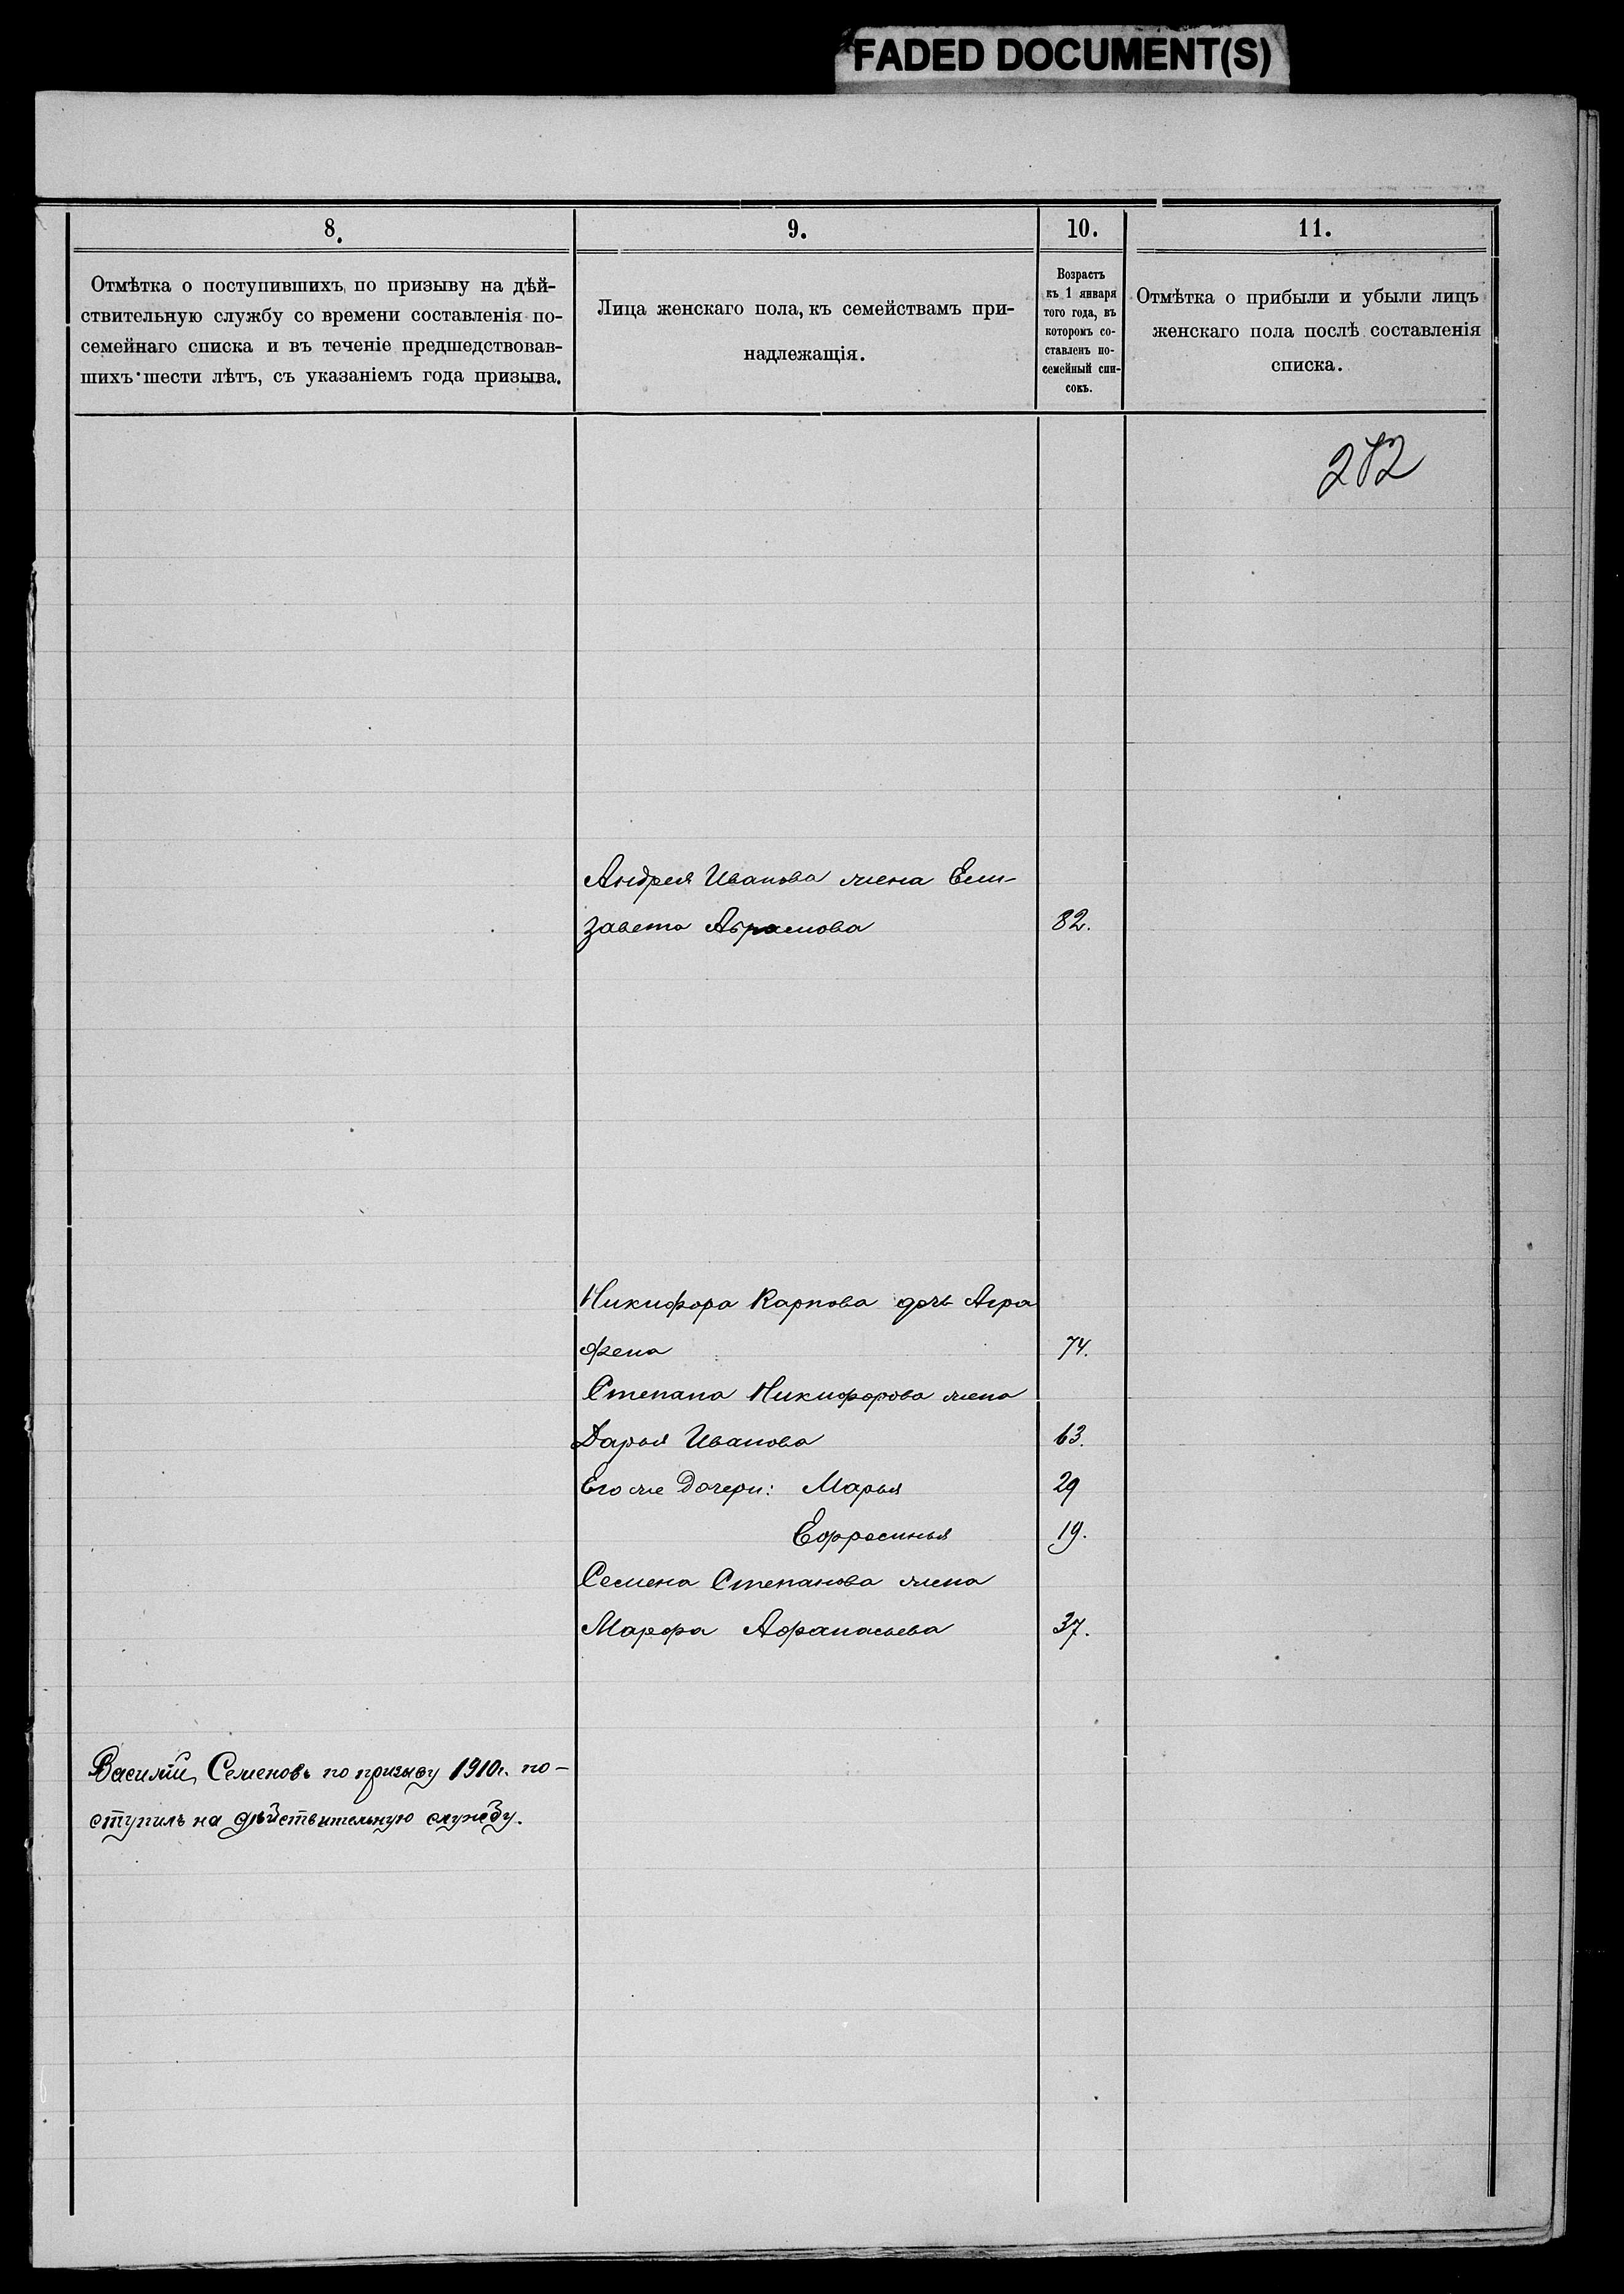 FADED DOCUMENT(S)
8.
9.
10.
11.
Отмѣтка о поступившихъ по призыву на дѣй-
ствительную службу со времени составленія по-
семейнаго списка и въ теченіе предшедствовав-
шихъ шести лѣтъ, съ указаніемъ года призыва.
Лица женскаго пола, къ семействамъ при-
надлежащія.
Возрастъ
къ 1 января
того года, въ
которомъ со-
ставленъ по-
семейный спи-
сокъ.
Отмѣтка о прибыли и убыли лицъ
женскаго пола послѣ составленія
списка.
Андрея Иванова жена Ели-
завета Абрамова 82.
Никифора Карпова дочь Агра
фена 74.
Степана Никифорова жена
Дарья Иванова 63.
Его же Дочери: Марья 29
Ефросинья 19.
Семена Степанова жена
Марфа Афанасьева 37.
Василій Семеновъ по призыву 1910г. по-
ступилъ на дѣйствительную службу.